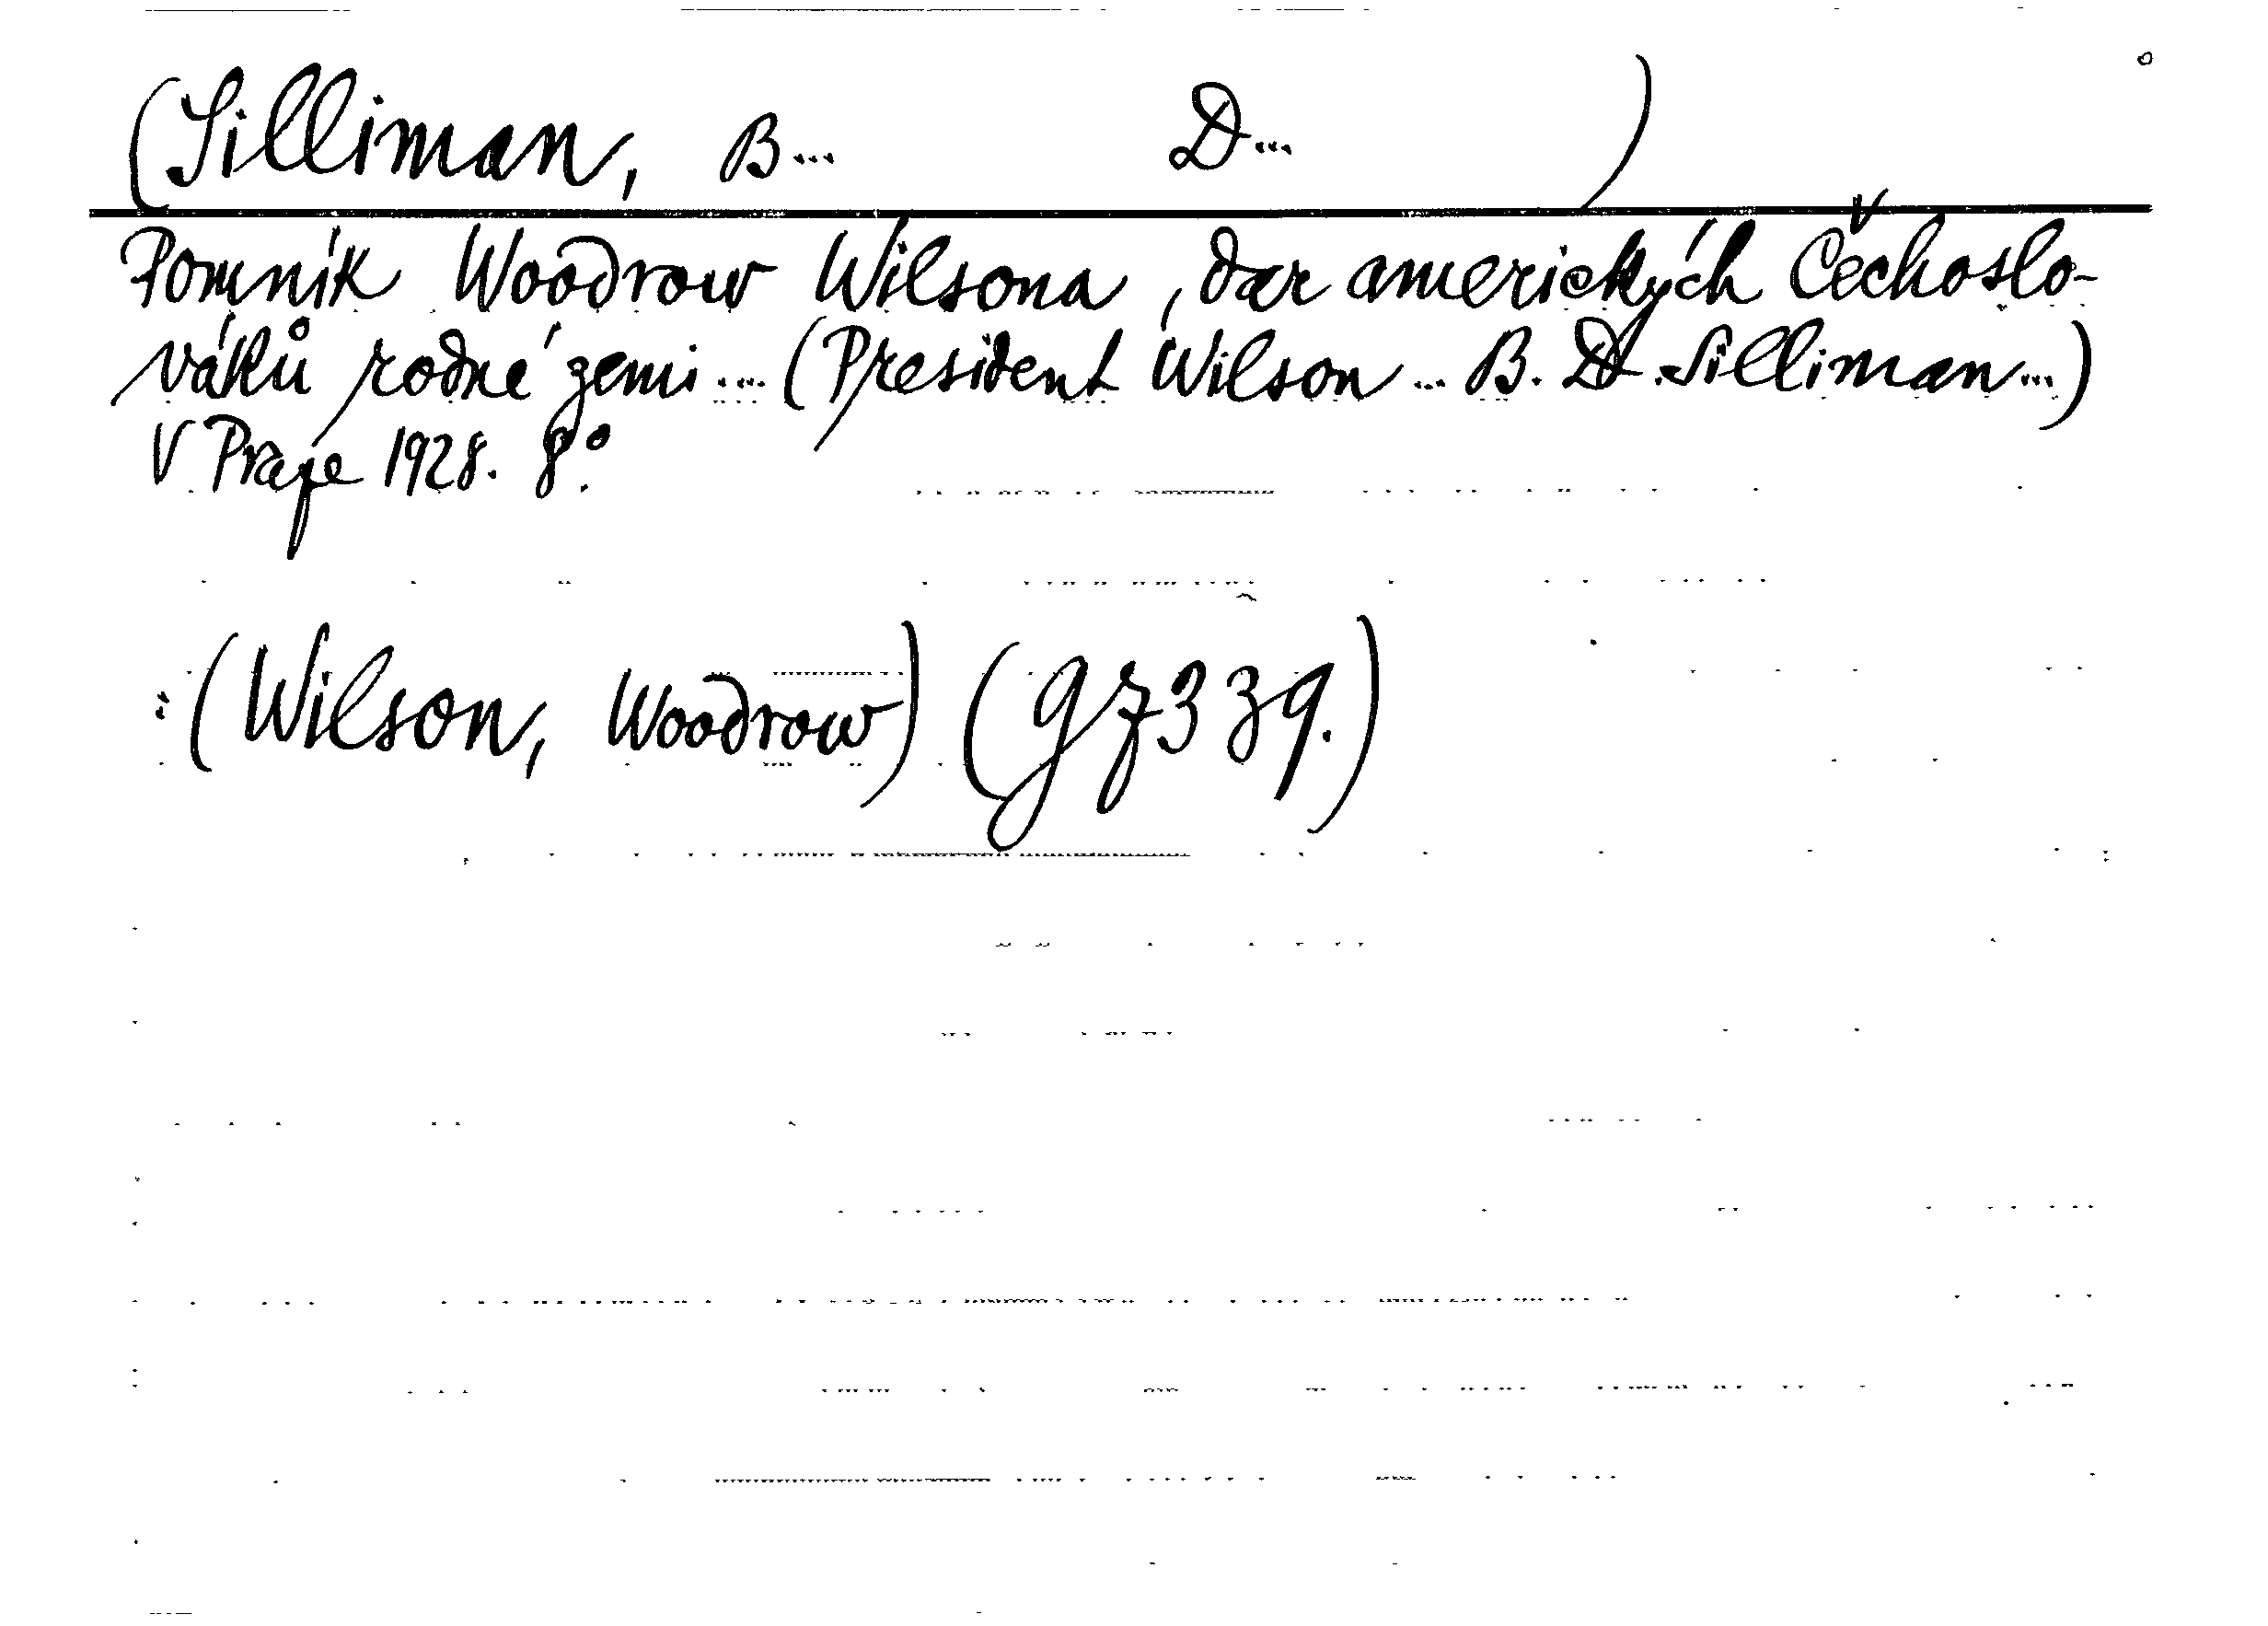 (Silliman, B... D... )
Pomník Woodrow Wilsona, dar amerických Čechoslo-
váků rodné zemi ... (President Wilson ... B. D. Silliman ...)
V Praze 1928. 8°.
: (Wilson, Woodrow) (